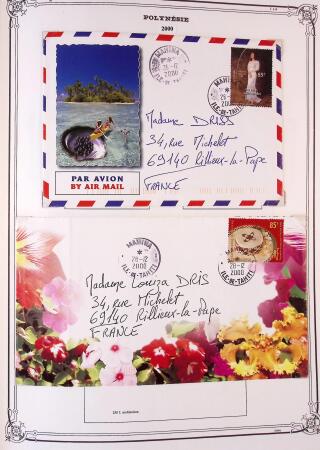 POLYNÉSIE
2000
MAHINA
28-12
2000
ILE-DE-TAHITI
MAHINA
28-12
2000
ILE-DE-TAHITI
85F
Madame DRISS
34, rue Michelet
69140 Rillieux-la-Pape
FRANCE
PAR AVION
BY AIR MAIL
MAHINA
28-12
2000
ILE-DE-TAHITI
85F
Madame Louiza DRIS
34, rue Michelet
69140 Rillieux-la-Pape
FRANCE